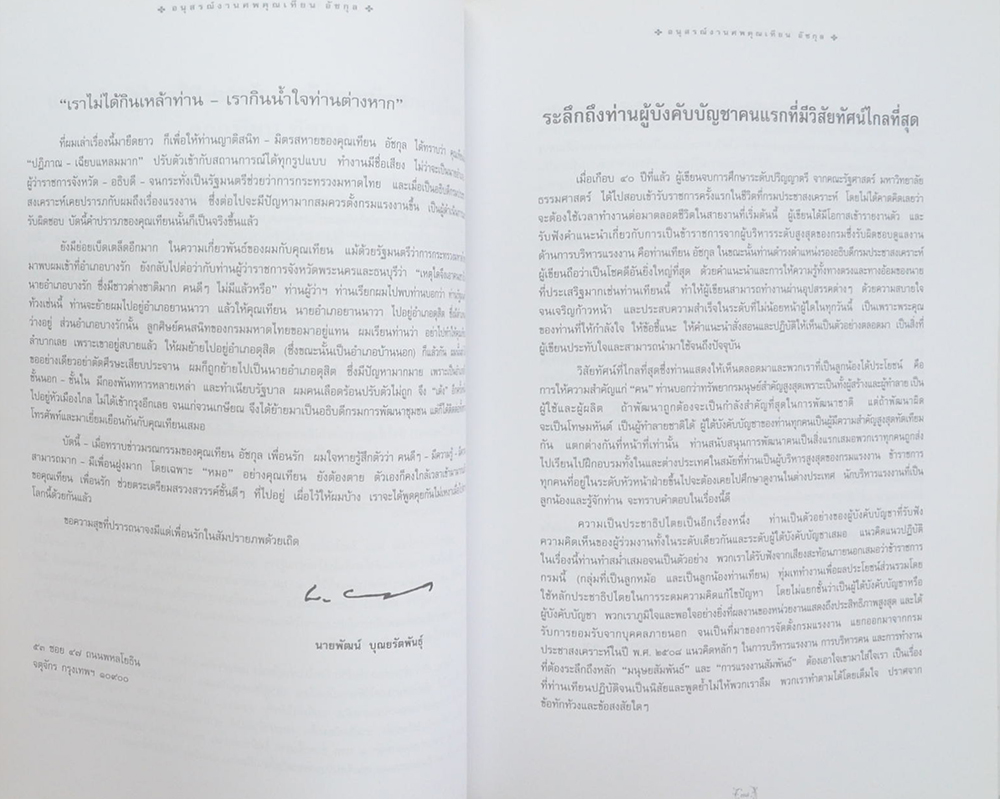 อนุสรณ์งานศพคุณเทียน อัชกุล
"เราไม่ได้กินเหล้าท่าน – เรากินน้ำใจท่านต่างหาก"
ที่ผมเล่าเรื่องนี้มายืดยาว ก็เพื่อให้ท่านญาติสนิท – มิตรสหายของคุณเทียน อัชกุล ได้ทราบว่า
"ปฏิภาณ – เฉียบแหลมมาก" ปรับตัวเข้ากับสถานการณ์ได้ทุกรูปแบบ ทำงานมีชื่อเสียง ไม่ว่าจะเป็น
ผู้ว่าราชการจังหวัด – อธิบดี – จนกระทั่งเป็นรัฐมนตรีช่วยว่าการกระทรวงมหาดไทย และเมื่อเป็น
สงเคราะห์เคยปรารภกับผมถึงเรื่องแรงงาน ซึ่งต่อไปจะมีปัญหามากสมควรตั้งกรมแรงงานขึ้น
รับผิดชอบ บัดนี้คำปรารภของคุณเทียนนั้นก็เป็นจริงขึ้นแล้ว
ยังมีย่อยเบ็ดเตล็ดอีกมาก ในความเกี่ยวพันธ์ของผมกับคุณเทียน แม้ด้วยรัฐมนตรีว่าการ
มาพบผมเข้าที่อำเภอบางรัก ยังกลับไปต่อว่ากับท่านผู้ว่าราชการจังหวัดพระนครและธนบุรีว่า
นายอำเภอบางรัก ซึ่งมีชาวต่างชาติมาก คนดีๆ ไม่มีแล้วหรือ" ท่านผู้ว่าฯ ท่านเรียกผมไปพบท่านบอกว่า
ท้วงเช่นนี้ ท่านจะย้ายผมไปอยู่อำเภอยานนาวา แล้วให้คุณเทียน นายอำเภอยานนาวา ไปอยู่อำเภอดุสิต
ว่างอยู่ ส่วนอำเภอบางรักนั้น ลูกศิษย์คนสนิทของกรมมหาดไทยขอมาอยู่แทน ผมเรียนท่านว่า อย่าไปทำให้
ลำบากเลย เพราะเขาอยู่สบายแล้ว ให้ผมย้ายไปอยู่อำเภอดุสิต (ซึ่งขณะนั้นเป็นอำเภอบ้านนอก) ก็แล้วกัน
ขออย่างเดียวอย่าตัดศีรษะเสียบประจาน ผมก็ถูกย้ายไปเป็นนายอำเภอดุสิต ซึ่งมีปัญหามากมาย
ชั้นนอก – ชั้นใน มีกองพันทหารหลายเหล่า และทำเนียบรัฐบาล ผมคนเลือดร้อนปรับตัวไม่ถูก จึง "เด้ง"
ไปอยู่หัวเมืองไกล ไม่ได้เข้ากรุงอีกเลย จนแก่จวนเกษียณ จึงได้ย้ายมาเป็นอธิบดีกรมการพัฒนาชุมชน
โทรศัพท์และมาเยี่ยมเยือนกันกับคุณเทียนเสมอ
บัดนี้ – เมื่อทราบข่าวมรณกรรมของคุณเทียน อัชกุล เพื่อนรัก ผมใจหายรู้สึกตัวว่า คนดีๆ – มีความรู้
สามารถมาก – มีเพื่อนฝูงมาก โดยเฉพาะ "หมอ" อย่างคุณเทียน ยังต้องตาย ตัวเองก็คงใกล้เวลาเข้ามา
ขอคุณเทียน เพื่อนรัก ช่วยตระเตรียมสรวงสวรรค์ชั้นดีๆ ที่ไปอยู่ เผื่อไว้ให้ผมบ้าง เราจะได้พูดคุยกัน
โลกนี้ด้วยกันแล้ว
ขอความสุขที่ปรารถนาจงมีแด่เพื่อนรักในสัมปรายภพด้วยเถิด
นายพัฒน์ บุณยรัตพันธุ์
๕๓ ซอย ๔๗ ถนนพหลโยธิน
จตุจักร กรุงเทพฯ ๑๐๙๐๐
อนุสรณ์งานศพคุณเทียน อัชกุล
ระลึกถึงท่านผู้บังคับบัญชาคนแรกที่มีวิสัยทัศน์ไกลที่สุด
เมื่อเกือบ ๔๐ ปีที่แล้ว ผู้เขียนจบการศึกษาระดับปริญญาตรี จากคณะรัฐศาสตร์ มหาวิทยาลัย
ธรรมศาสตร์ ได้ไปสอบเข้ารับราชการครั้งแรกในชีวิตที่กรมประชาสงเคราะห์ โดยไม่ได้คาดคิดเลยว่า
จะต้องใช้เวลาทำงานต่อมาตลอดชีวิตในสายงานที่เริ่มต้นนี้ ผู้เขียนได้มีโอกาสเข้ารายงานตัว และ
รับฟังคำแนะนำเกี่ยวกับการเป็นข้าราชการจากผู้บริหารระดับสูงสุดของกรมซึ่งรับผิดชอบดูแลงาน
ด้านการบริหารแรงงาน คือท่านเทียน อัชกุล ในขณะนั้นท่านดำรงตำแหน่งรองอธิบดีกรมประชาสงเคราะห์
ผู้เขียนถือว่าเป็นโชคดีอันยิ่งใหญ่ที่สุด ด้วยคำแนะนำและการให้ความรู้ทั้งทางตรงและทางอ้อมของนาย
ที่ประเสริฐมากเช่นท่านเทียนนี้ ทำให้ผู้เขียนสามารถทำงานผ่านอุปสรรคต่างๆ ด้วยความสบายใจ
จนเจริญก้าวหน้า และประสบความสำเร็จในระดับที่ไม่น้อยหน้าผู้ใดในทุกวันนี้ เป็นเพราะพระคุณ
ของท่านที่ให้กำลังใจ ให้ข้อชี้แนะ ให้คำแนะนำสั่งสอนและปฏิบัติให้เห็นเป็นตัวอย่างตลอดมา เป็นสิ่งที่
ผู้เขียนประทับใจและสามารถนำมาใช้จนถึงปัจจุบัน
วิสัยทัศน์ที่ไกลที่สุดซึ่งท่านแสดงให้เห็นตลอดมาและพวกเราที่เป็นลูกน้องได้ประโยชน์ คือ
การให้ความสำคัญแก่ "คน" ท่านบอกว่าทรัพยากรมนุษย์สำคัญสูงสุดเพราะเป็นทั้งผู้สร้างและผู้ทำลาย เป็น
ผู้ใช้และผู้ผลิต ถ้าพัฒนาถูกต้องจะเป็นกำลังสำคัญที่สุดในการพัฒนาชาติ แต่ถ้าพัฒนาผิด
จะเป็นโทษมหันต์ เป็นผู้ทำลายชาติได้ ผู้ใต้บังคับบัญชาของท่านทุกคนเป็นผู้มีความสำคัญสูงสุดทัดเทียม
กัน แตกต่างกันที่หน้าที่เท่านั้น ท่านสนับสนุนการพัฒนาคนเป็นสิ่งแรกเสมอพวกเราทุกคนถูกส่ง
ไปเรียนไปฝึกอบรมทั้งในและต่างประเทศในสมัยที่ท่านเป็นผู้บริหารสูงสุดของกรมแรงงาน ข้าราชการ
ทุกคนที่อยู่ในระดับหัวหน้าฝ่ายขึ้นไปจะต้องเคยไปศึกษาดูงานในต่างประเทศ นักบริหารแรงงานที่เป็น
ลูกน้องและรู้จักท่าน จะทราบคำตอบในเรื่องนี้ดี
ความเป็นประชาธิปไตยเป็นอีกเรื่องหนึ่ง ท่านเป็นตัวอย่างของผู้บังคับบัญชาที่รับฟัง
ความคิดเห็นของผู้ร่วมงานทั้งในระดับเดียวกันและระดับผู้ใต้บังคับบัญชาเสมอ แนวคิดแนวปฏิบัติ
ในเรื่องนี้ท่านทำสม่ำเสมอจนเป็นตัวอย่าง พวกเราได้รับฟังจากเสียงสะท้อนภายนอกเสมอว่าข้าราชการ
กรมนี้ (กลุ่มที่เป็นลูกหม้อ และเป็นลูกน้องท่านเทียน) ทุ่มเททำงานเพื่อผลประโยชน์ส่วนรวมโดย
ใช้หลักประชาธิปไตยในการระดมความคิดแก้ไขปัญหา โดยไม่แยกชั้นว่าเป็นผู้ใต้บังคับบัญชาหรือ
ผู้บังคับบัญชา พวกเราภูมิใจและพอใจอย่างยิ่งที่ผลงานของหน่วยงานแสดงถึงประสิทธิภาพสูงสุด และได้
รับการยอมรับจากบุคคลภายนอก จนเป็นที่มาของการจัดตั้งกรมแรงงาน แยกออกมาจากกรม
ประชาสงเคราะห์ในปี พ.ศ. ๒๕๐๘ แนวคิดหลักๆ ในการบริหารแรงงาน การบริหารคน และการทำงาน
ที่ต้องระลึกถึงหลัก "มนุษยสัมพันธ์" และ "การแรงงานสัมพันธ์" ต้องเอาใจเขามาใส่ใจเรา เป็นเรื่อง
ที่ท่านเทียนปฏิบัติจนเป็นนิสัยและพูดย้ำไม่ให้พวกเราลืม พวกเราทำตามได้โดยเต็มใจ ปราศจาก
ข้อทักท้วงและข้อสงสัยใดๆ